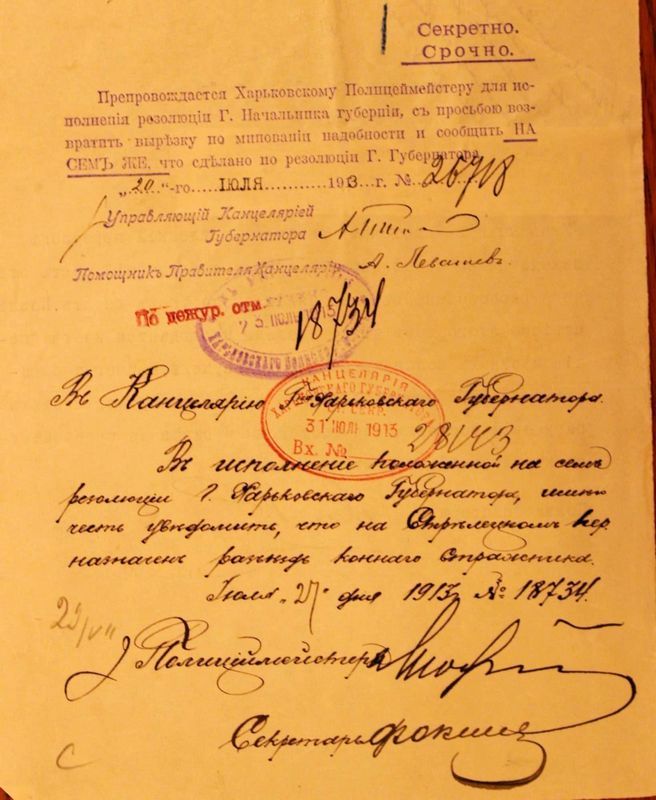 Секретно.
Срочно.
Препровождается Харьковскому Полицеймейстеру для ис-
полненія резолюціи Г. Начальника губерніи, съ просьбою воз-
вратить вырѣзку по минованіи надобности и сообщить НА
СЕМЪ ЖЕ, что сдѣлано по резолюціи Г. Губернатора.
„20“-го ІЮЛЯ 1913 г. № 26718
Управляющій Канцеляріей
Губернатора
Помощникъ Правителя Канцеляріи А. Левашевъ
По дежур. отм.
ІЮЛЬ
18734
КАНЦЕЛЯРІЯ
ХАРЬКОВСКАГО ГУБЕРНАТОРА
СЕКР.
31 ІЮЛЬ 1913
Вх. № 28443
Въ Канцелярію Г-на Харьковскаго Губернатора.
Въ исполненіе положенной на семъ
резолюціи Г. Харьковскаго Губернатора, имѣю
честь увѣдомить, что на Стрѣлецкомъ пер.
назначенъ разъѣздъ коннаго стражника.
Іюля „27“ дня 1913 г. № 18734.
Полиціймейстеръ
Секретарь Фокинъ
С